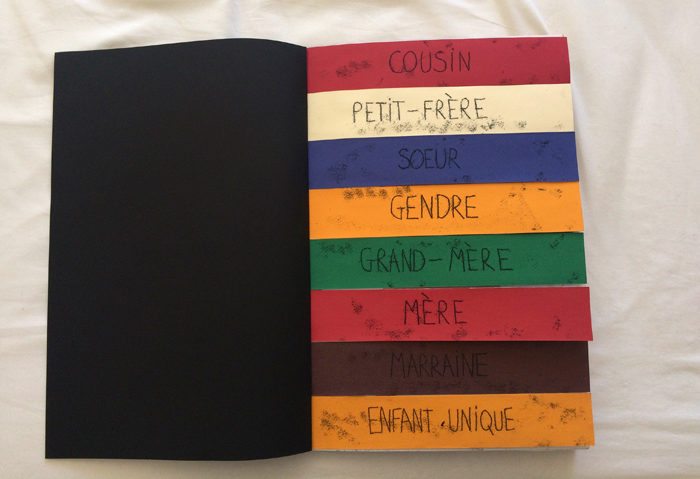 COUSIN
PETIT-FRÈRE
SOEUR
GENDRE
GRAND-MÈRE
MÈRE
MARRAINE
ENFANT UNIQUE